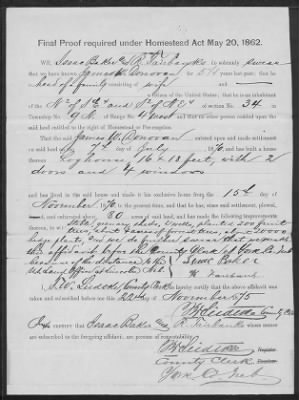 Final Proof required under Homestead Act May 20, 1862.
WE, Isaac Baker & R Fairbanks do solemnly swear
that we have known James W. Donovan for 5½ years last past; that he
head of a family consisting of wife
a citizen of the United States; that he is an inhabitant
of the N½ of SE¼ and S½ of NE¼ of section No. 34 in
Township No. 9 N. of Range No. 4 West and that no other person
entitled to the right of Homestead or Pre-emption.
That the said James W. Donovan entered upon and made settlement
on said land on the 7th day of July 1870 and has built a house
thereon Loghouse, 16 x 18 feet, with 2
doors and 4 windows
and has lived in the said house and made it his exclusive home from the 15th
of November 1870 to the present time, and that he has, since said settlement,
and cultivated about 30 acres of said land, and has made the following improvements
thereto,
stable, granary, sheds, 2 wells, planted 200 fruit
trees, about forest trees, 20000
hedge plants, And we do further swear that we make
this affidavit before the County Clerk of York Co. Neb
because of the distance to the
U.S. Land Office at Lincoln Neb.
Isaac Baker
R Fairbanks
I, County Clerk do hereby certify that the above affidavit was
taken and subscribed before me this 22nd day of November 1875
County Clerk
I CERTIFY that Isaac Baker and R. Fairbanks whose names
are subscribed to the foregoing affidavit, are persons of respectability.
Register.
County Clerk Receiver.
York Co. Neb.